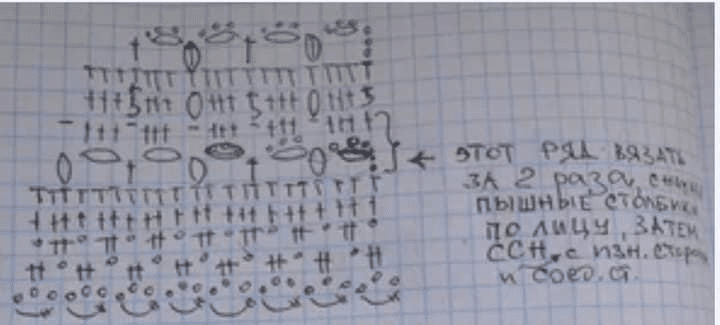 ← ЭТОТ РЯД ВЯЗАТЬ
ЗА 2 раза,
ПЫШНЫЕ СТОЛБИКИ
ПО ЛИЦУ, ЗАТЕМ
ССН, с изн. сторо
и соед. ст.